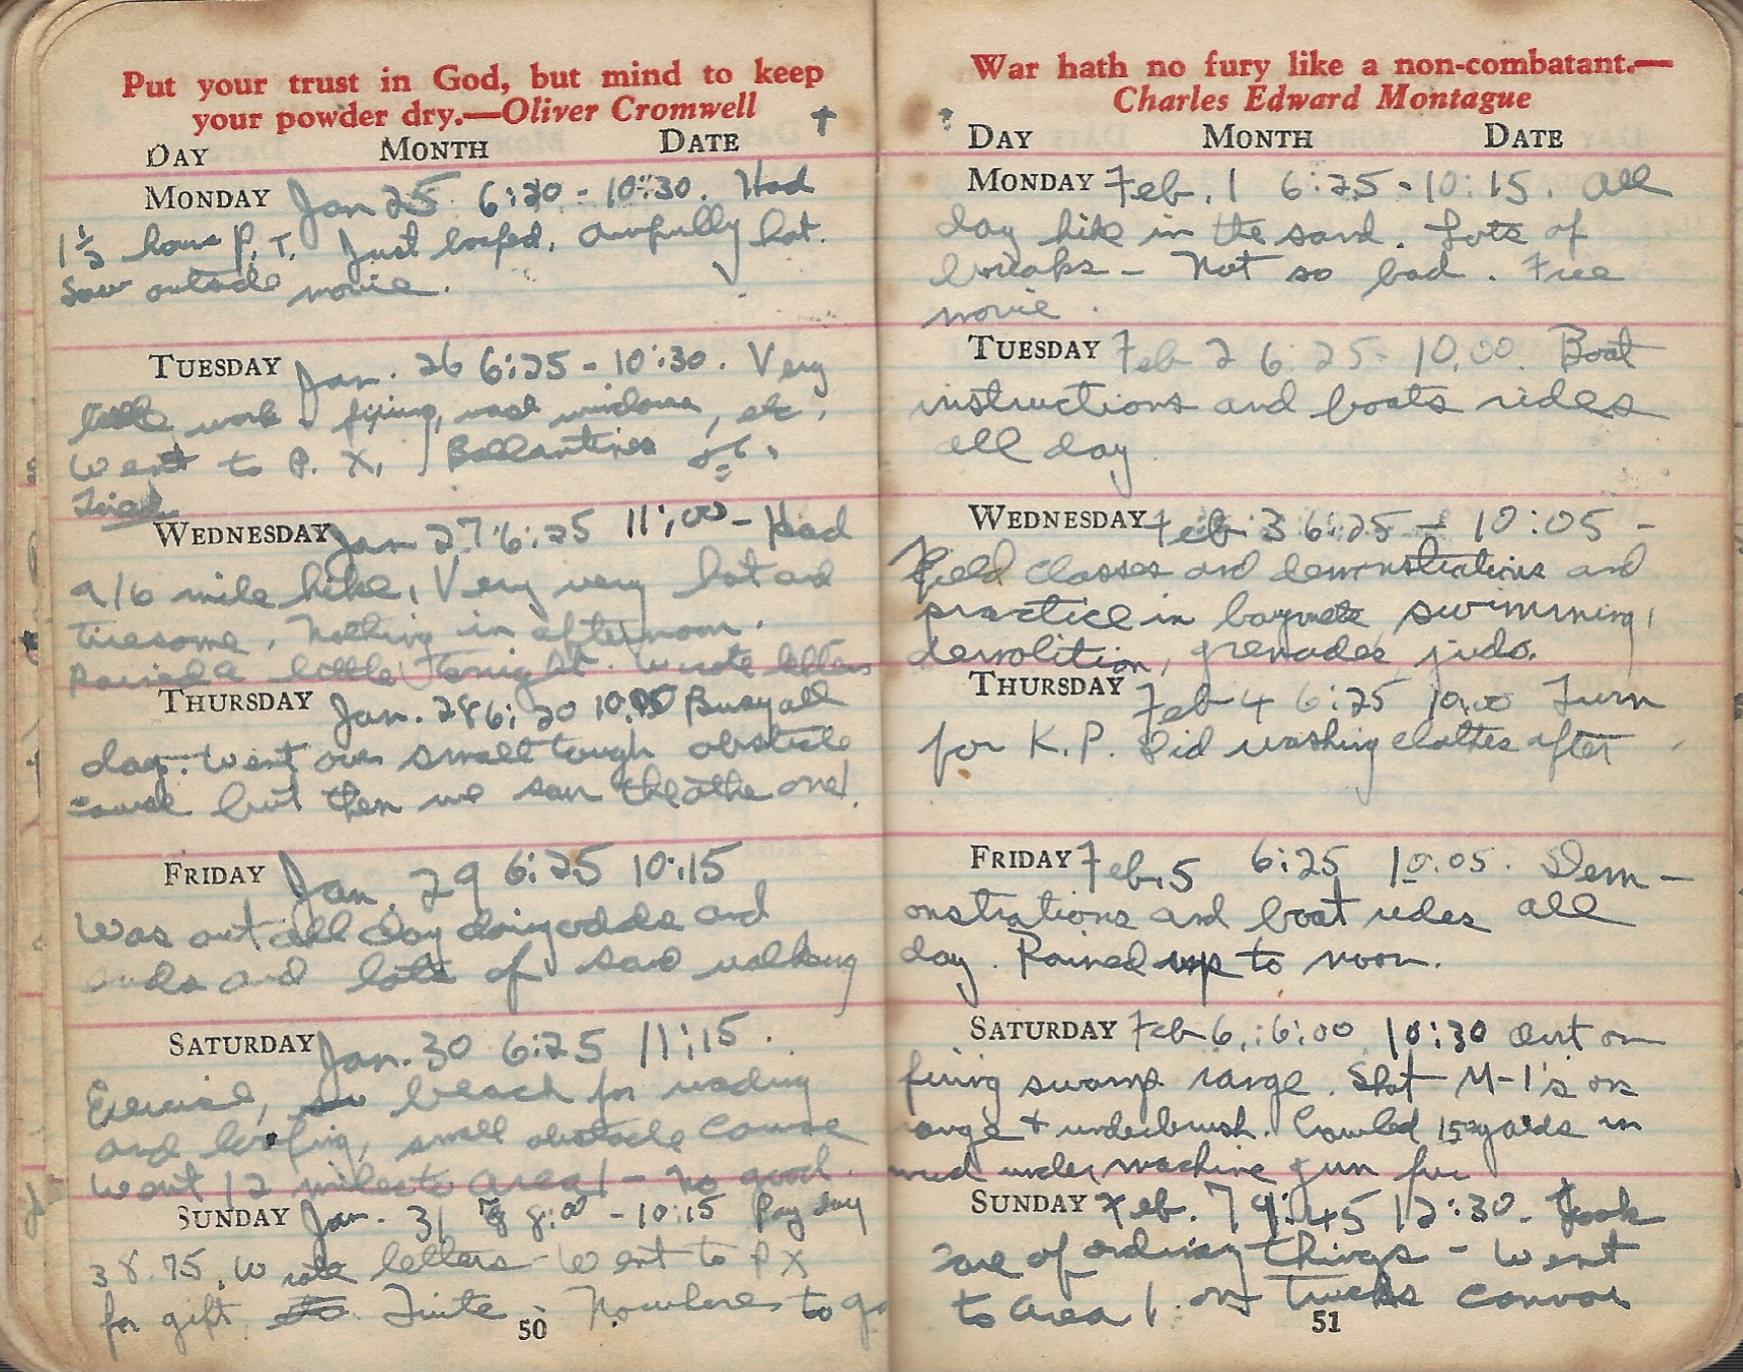 Put your trust in God, but mind to keep
your powder dry.—Oliver Cromwell
DAY MONTH DATE
MONDAY Jan 25 6:20 - 10:30. Had
1 1/2 hours P.T. Just loafed. Awfully hot.
Saw outside movie.
TUESDAY Jan. 26 6:25 - 10:30. Very
little work - fixing, windows, etc.
Went to P.X. Ballantines
WEDNESDAY Jan 27 6:25 11:00 - Had
a 16 mile hike. Very very hot and
tiresome. Nothing in afternoon.
Rained a little tonight. Wrote letters
THURSDAY Jan. 28 6:20 10:00 Busy all
day. Went over small tough obstacle
course but then we saw the other one!
FRIDAY Jan. 29 6:25 10:15
Was out all day doing odds and
ends and lots of sand walking
SATURDAY Jan. 30 6:25 11:15.
Exercise, beach for wading
and loafing, small obstacle course
Went 12 miles to area 1 - no good.
SUNDAY Jan. 31 8:00 - 10:15 Pay day
38.75. Wrote letters - Went to PX
for gift. - Nowhere to go
50
War hath no fury like a non-combatant.—
Charles Edward Montague
DAY MONTH DATE
MONDAY Feb. 1 6:25 - 10:15. All
day hike in the sand. Lots of
breaks - Not so bad. Free
movie.
TUESDAY Feb 2 6:25 - 10:00. Boat
instructions and boats rides
all day
WEDNESDAY Feb 3 6:25 - 10:05 -
Field classes and demonstrations and
practice in bayonets swimming,
demolition, grenades, judo.
THURSDAY Feb 4 6:25 10:00 Turn
for K.P. Did washing clothes after
FRIDAY Feb. 5 6:25 10:05. Dem-
onstrations and boat rides all
day. Rained up to noon.
SATURDAY Feb 6, 6:00 10:30 Out on
firing swamp range. Shot M-1's on
range + underbrush. Crawled yards in
mud under machine gun fire
SUNDAY Feb. 7 9:45 12:30. Took
care of ordinary things - Went
to area 1. on trucks convoy
51